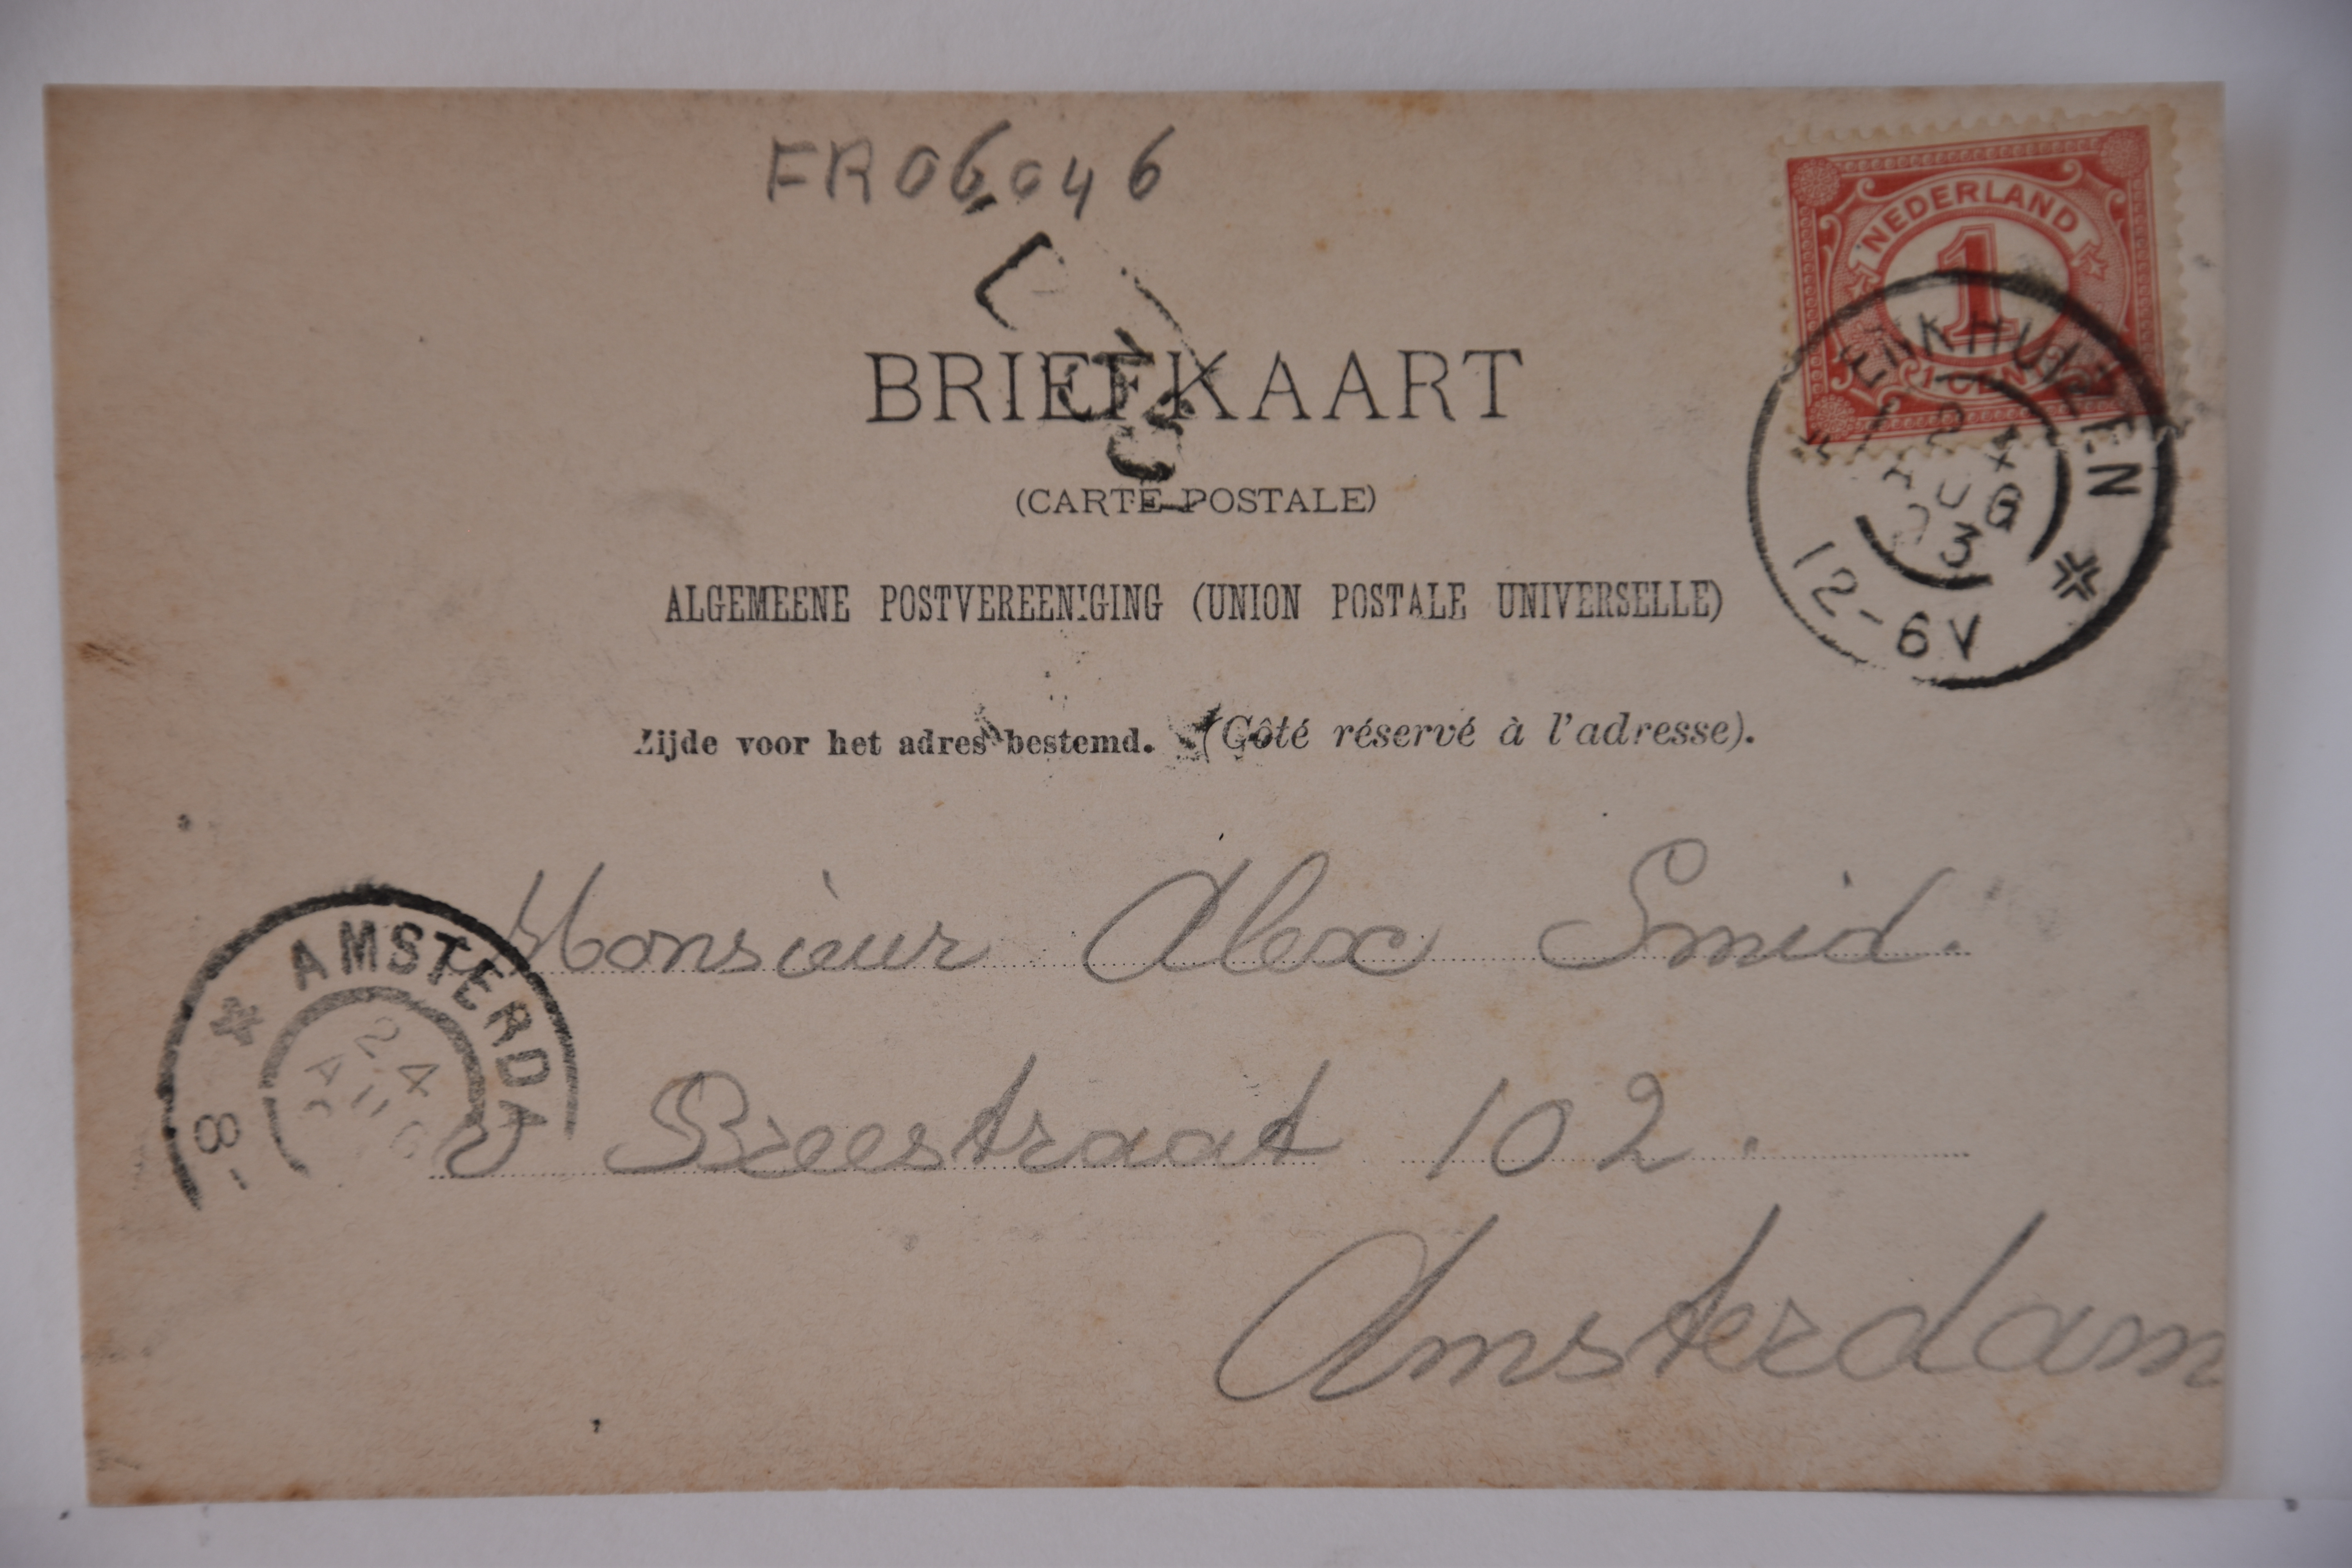 FR06046
NEDERLAND
1
1 CENT
ENKHUIZEN
24
AUG
03
12-6V
BRIEFKAART
(CARTE POSTALE)
ALGEMEENE POSTVEREENIGING (UNION POSTALE UNIVERSELLE)
Zijde voor het adres bestemd. (Côté réservé à l'adresse).
Monsieur Alex Smid.
Breestraat 102.
Amsterdam
AMSTERDA
24
AUG
8-